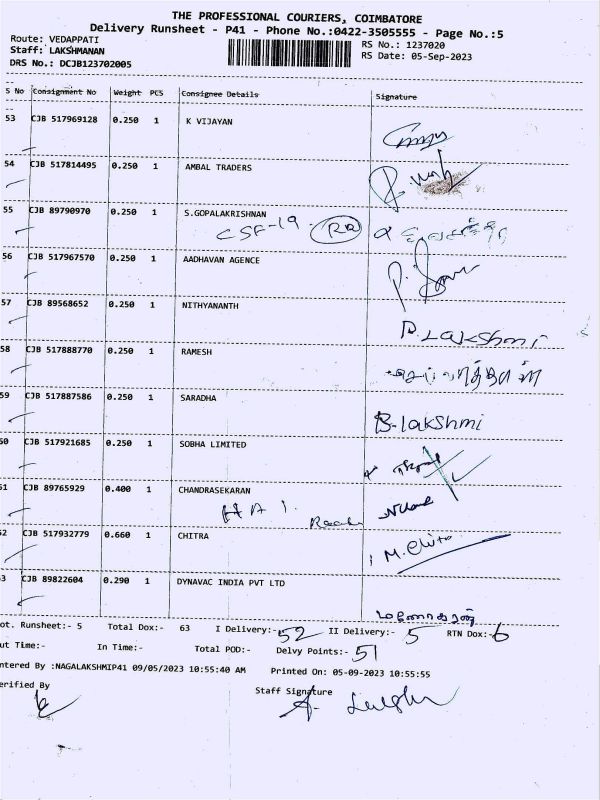 THE PROFESSIONAL COURIERS, COIMBATORE
Delivery Runsheet - P41 - Phone No.:0422-3505555 - Page No.:5
Route: VEDAPPATI
RS No.: 1237020
Staff: LAKSHMANAN
RS Date: 05-Sep-2023
DRS No.: DCJB123702005
S No Consignment No Weight PCS Consignee Details Signature
53 CJB 517969128 0.250 1 K VIJAYAN
54 CJB 517814495 0.250 1 AMBAL TRADERS
55 CJB 89790970 0.250 1 S.GOPALAKRISHNAN
CSF-19.
56 CJB 517967570 0.250 1 AADHAVAN AGENCE
57 CJB 89568652 0.250 1 NITHYANANTH
P. Lakshmi
58 CJB 517888770 0.250 1 RAMESH
59 CJB 517887586 0.250 1 SARADHA
B-lakshmi
60 CJB 517921685 0.250 1 SOBHA LIMITED
61 CJB 89765929 0.400 1 CHANDRASEKARAN
62 CJB 517932779 0.660 1 CHITRA
M. Chitra
63 CJB 89822604 0.290 1 DYNAVAC INDIA PVT LTD
மனோகரன்
ot. Runsheet:- 5 Total Dox:- 63 I Delivery:- 52 II Delivery:- 5 RTN Dox:- 6
ut Time:- In Time:- Total POD:- Delvy Points:- 51
ntered By :NAGALAKSHMIP41 09/05/2023 10:55:40 AM Printed On: 05-09-2023 10:55:55
erified By
Staff Signature